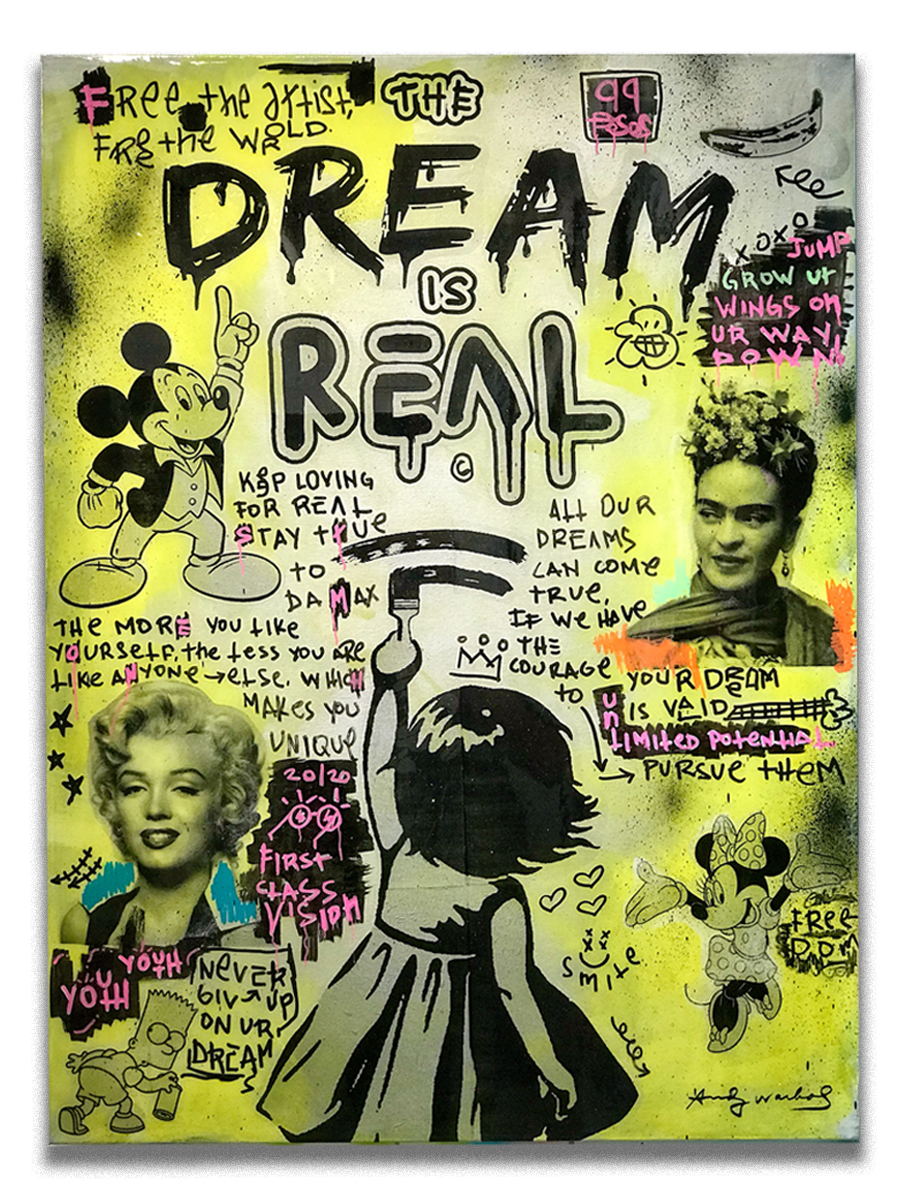 FRee the Artist,
FREE the WORLD.
THE
99
PESOS
DREAM
IS
REAL
©
XOXO
JUMP
GROW UR
WINGS ON
UR WAY
DOWN!
KEEP LOVING
FOR REAL
STAY tRUe
to
DA MAX
ALL OUR
DREAMS
CAN COMe
tRUe,
IF WE HAVe
THE
COURAGe
to
PURSUe tHEM
tHe MORE YOU LIKe
YOURSELF, the Less YOU ARe
LIKe ANYONe → eLSe. WHICH
MAKeS YOU
UNIQUe
YOUR DREAM
IS VALID
UN
LIMIteD POteNtIAL
20/20
FIRSt
CLASS
VISION
YOU
YOUtH
YOUtH
NeVeR
GIV UP
ON UR
DREAM
SMILe
FRee
DOM
Andy Warhol